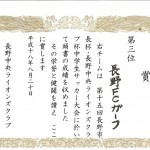 賞
第三位
長野FCガーフ
右チームは 第十五回長野市
長杯・長野中央ライオンズクラ
ブ杯中学生サッカー大会に於い
て頭書の成績を収めました
その栄誉と健闘を讃え ここ
に賞します
平成十八年八月二十日
長野中央ライオンズクラブ